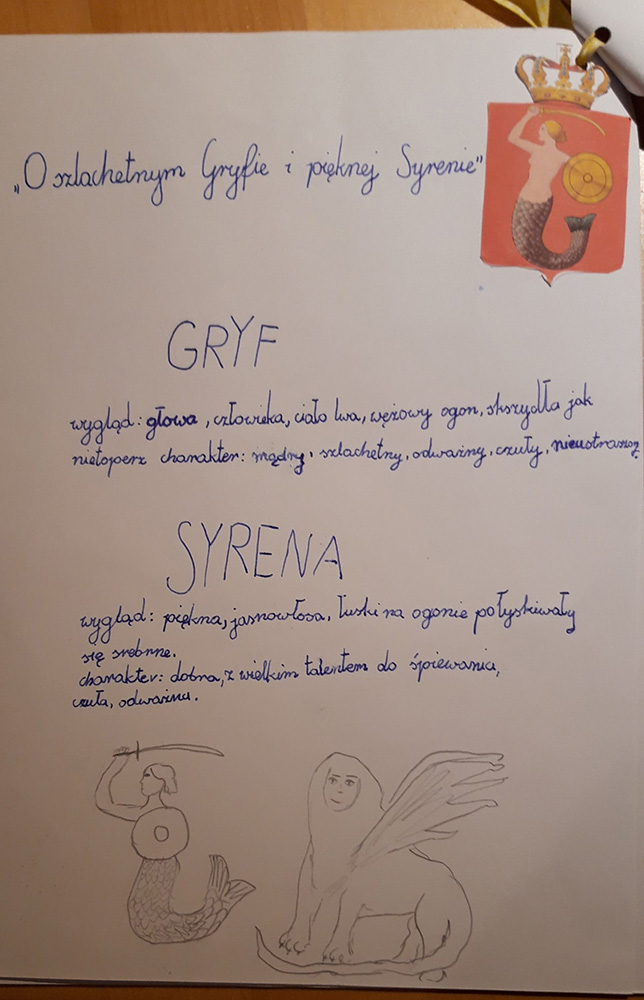 „O szlachetnym Gryfie i pięknej Syrenie"
GRYF
wygląd: głowa, człowieka, ciało lwa, wężowy ogon, skrzydła jak
nietoperz charakter: mądry, szlachetny, odważny, czuły, nieustraszo
SYRENA
wygląd: piękna, jasnowłosa, łuski na ogonie połyskiwały
się srebrne.
charakter: dobra, z wielkim talentem do śpiewania,
czuła, odważna.